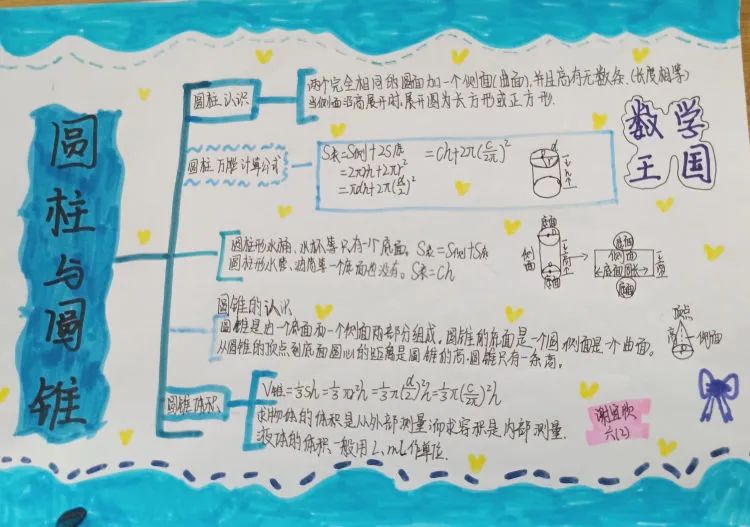 圆柱与圆锥
数学
王国
圆柱认识
两个完全相同的圆面加一个侧面(曲面),并且高有无数条.(长度相等)
当侧面沿高展开时,展开图为长方形或正方形.
圆柱
计算公式
S表=S侧+2S底 =Ch+2π(C/2π)²
=2πrh+2πr²
=πdh+2π(d/2)²
圆柱形水桶、水杯等只有一个底面。S表=S侧+S底
圆柱形水管、烟筒等一个底面也没有。S表=Ch
底面
侧面
高
底面
底面
侧面
底面周长
高
底面
圆锥的认识
圆锥是由一个底面和一个侧面两部分组成。圆锥的底面是一个圆,侧面是一个曲面。
从圆锥的顶点到底面圆心的距离是圆锥的高.圆锥只有一条高。
顶点
高
侧面
圆锥体积
V锥=1/3Sh=1/3πr²h=1/3π(d/2)²h=1/3π(C/2π)²h
求物体的体积是从外部测量而求容积是内部测量.
液体的体积一般用L、mL作单位.
六(2)